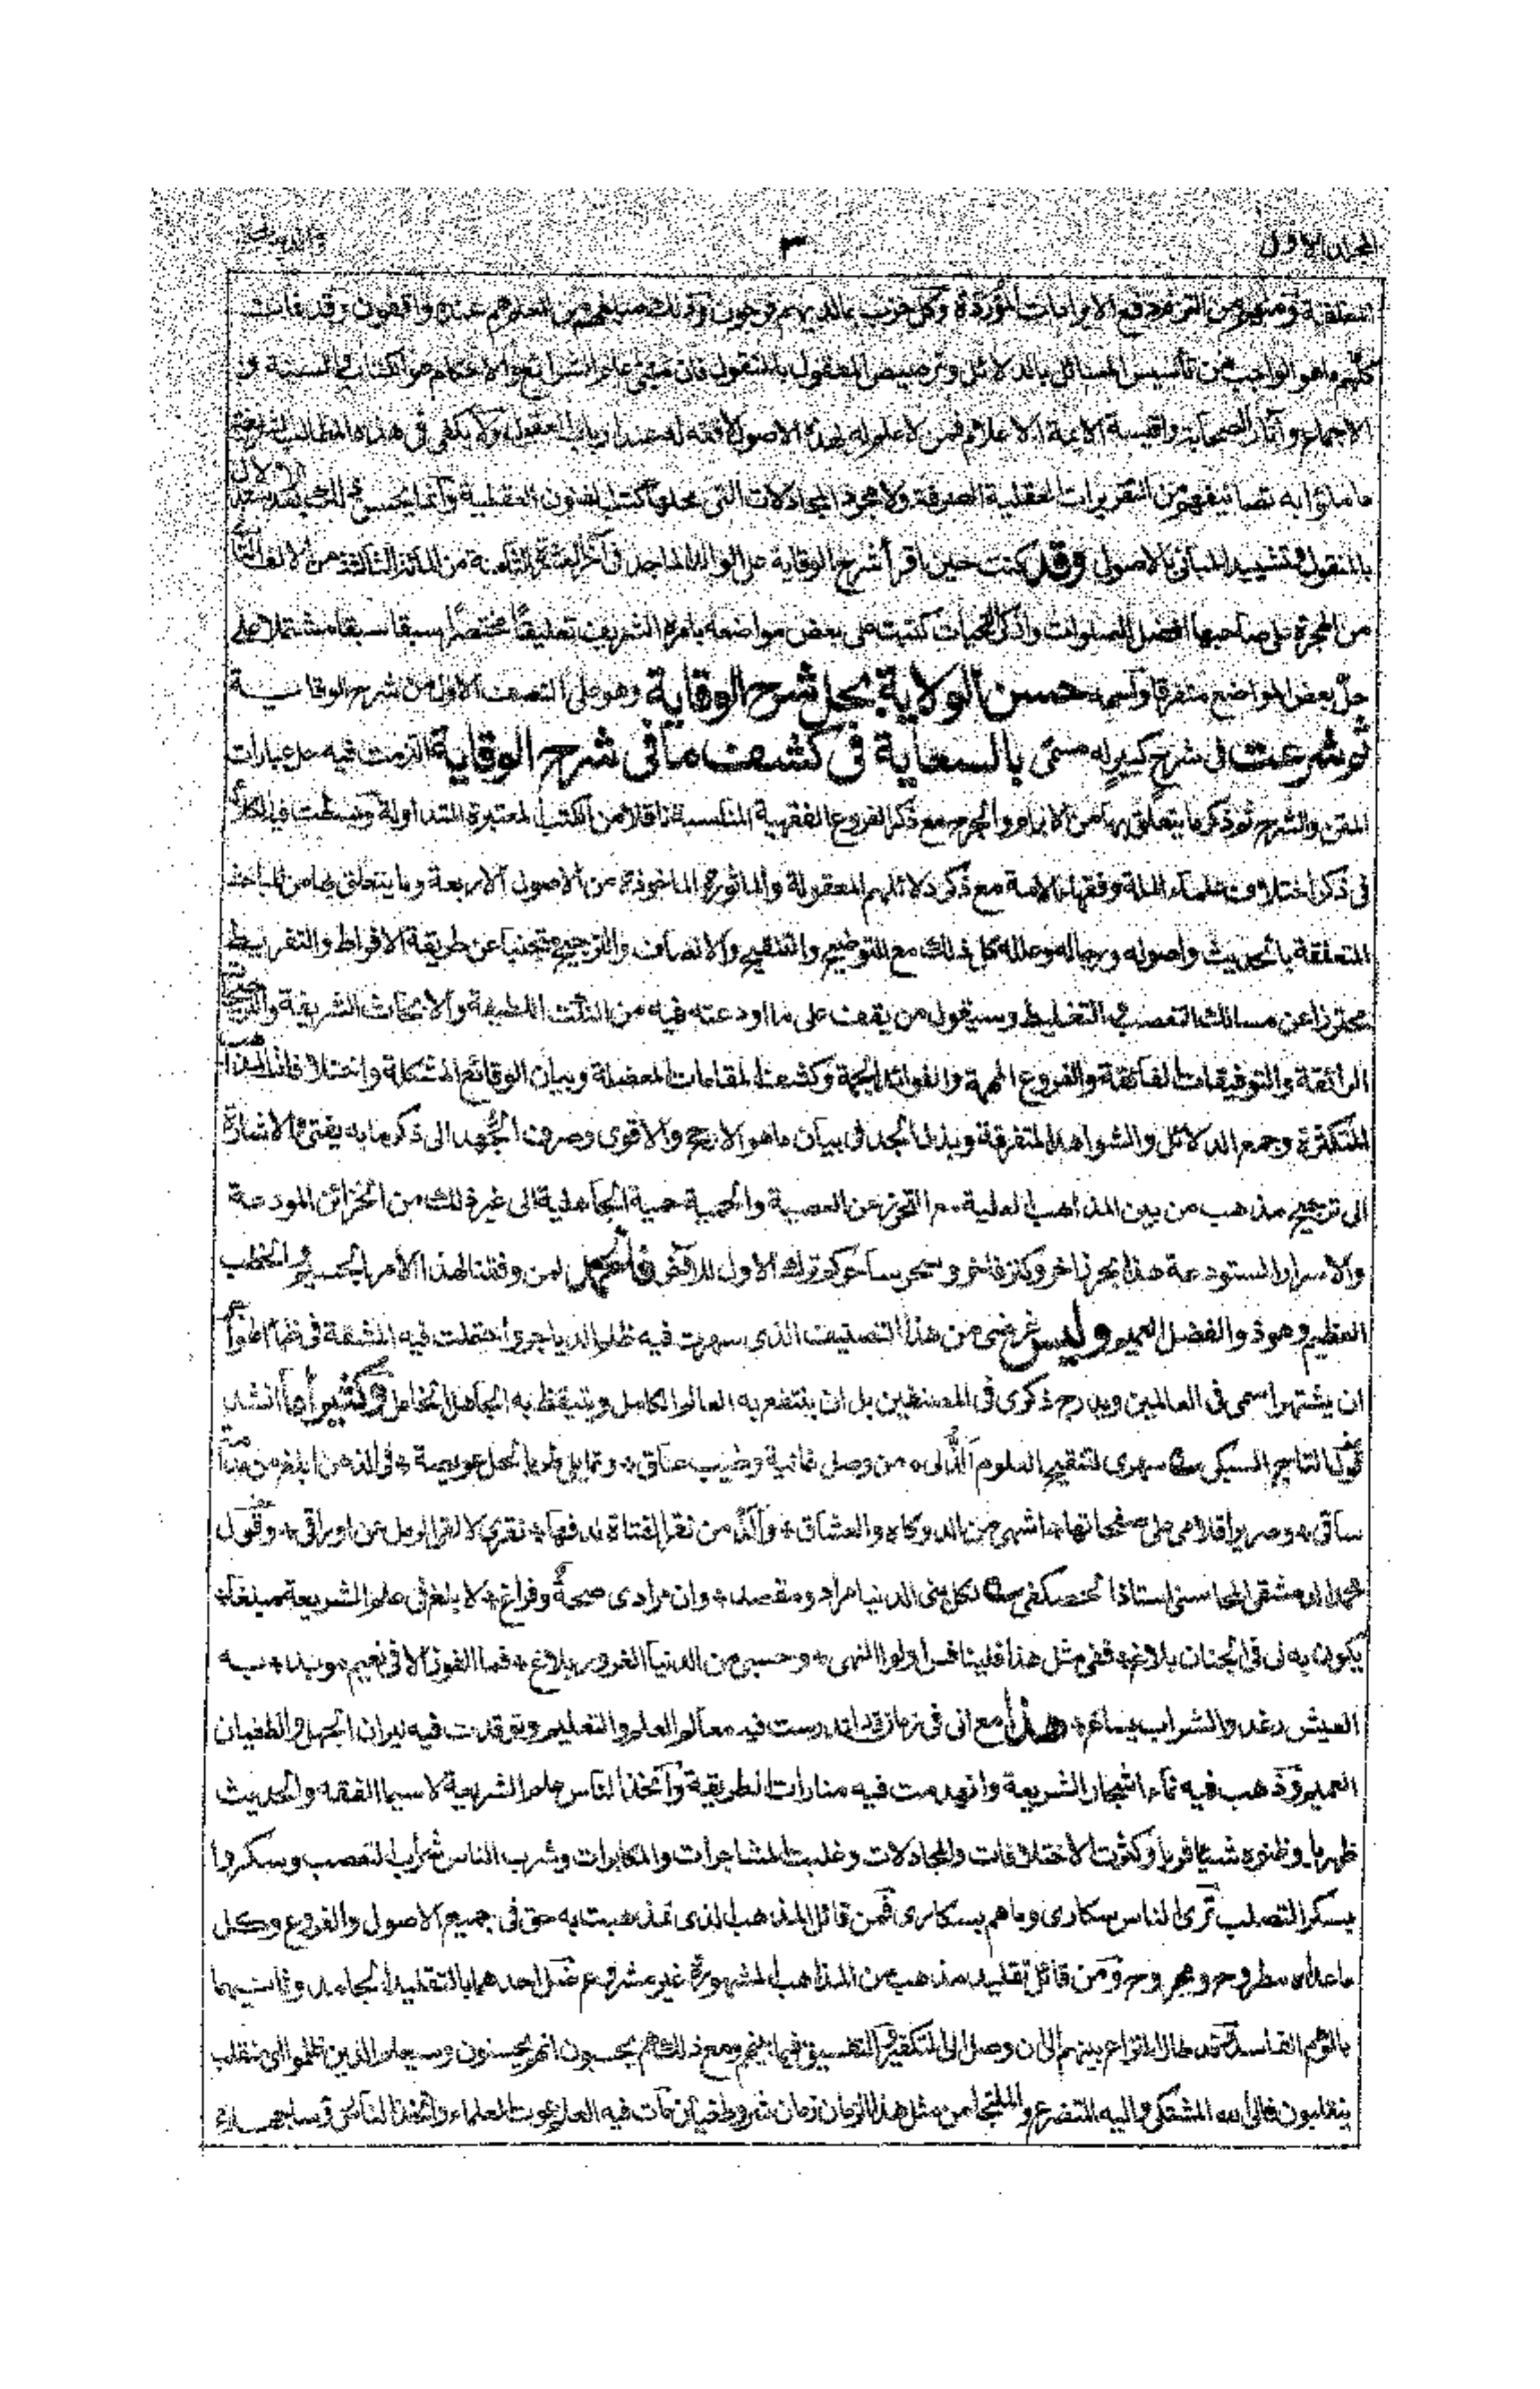 المجلد الاول ٣
ومنهم من التزم دفع الايرادات الموردة وكل حزب بما لديهم فرحون وذلك مبلغهم من العلم هم عنده واقفون وقد فات
كلهم ما هو الواجب من تأسيس المسائل بالدلائل وترصيص المعقول بالمنقول فان مبنى علم الشرائع والاحكام هو الكتاب والسنة و
الاجماع وآثار الصحابة واقيسة الائمة الاعلام فمن لا علم له بهذه الاصول لا فقه له عند ارباب العقول ولا يكفى فى هذه المطالب الشرعية
ما ملؤا به تصانيفهم من التقريرات العقلية الصرفة ولا مجرد المجادلات التى محلها كتب الفنون العقلية وانما يحسن ذلك بعد
بالمنقول وتشييد المبانى بالاصول وقد كنت حين اقرأ شرح الوقاية على الوالد الماجد فى آخر العشرة الثامنة من المائة الثالثة من الالف
من الهجرة على صاحبها افضل الصلوات وازكى التحيات كتبت على بعض مواضعه بامره الشريف تعليقا مختصرا سبقا سبقا مشتملا على
حل بعض المواضع متفرقا وسميته حسن الولاية بحل شرح الوقاية وهو على النصف الاول من شرح الوقاية
ثم شرعت فى شرح كبير له مسمى بالسعاية فى كشف ما فى شرح الوقاية التزمت فيه حل عبارات
المتن والشرح ثم ذكر ما يتعلق بهما من الابرام والجرح مع ذكر الفروع الفقهية المناسبة ناقلا من الكتب المعتبرة المتداولة وبسطت فيه الكلام
فى ذكر اختلاف علماء الملة وفقهاء الامة مع ذكر دلائلهم المعقولة والماثورة الماخوذة من الاصول الاربعة وما يتعلق بها من المباحث
المتعلقة بالحديث واصوله ورجاله وعلله كل ذلك مع التوضيح والتنقيح والانصاف والترجيح متجنبا عن طريقة الافراط والتفريط
محترزا عن مسالك التعصب والتغليط وسيقول من يقف على ما اودعته فيه من النكت اللطيفة والابحاث الشريفة
الرائقة والتوفيقات الفائقة والفروع المهمة والفوائد الجمة وكشف المقامات المعضلة وبيان الوقائع المشكلة واختلافات المذاهب
المتكثرة وجمع الدلائل والشواهد المتفرقة وبذل الجد فى بيان ما هو الارجح والاقوى وصرف الجهد الى ذكر ما به يفتى والاشارة
الى ترجيح مذهب من بين المذاهب العلية مع التحرز عن العصبية والحمية حمية الجاهلية الى غير ذلك من الخزائن المودعة
والاسرار المستودعة هذا بحر زاخر وكنز فاخر وسحر ساحر كم ترك الاول للآخر فالحمد لمن وفقنا لهذا الامر الجسيم والخطب
العظيم وهو ذو الفضل العميم وليس غرضى من هذا التصنيف الذى سهرت فيه ظلم الدياجر واحتملت فيه المشقة فى ظمأ الهواجر
ان يشتهر اسمى فى العالمين ويدرج ذكرى فى المصنفين بل ان ينتفع به العالم الكامل ويتيقظ به الجاهل الخامل وكثيرا ما انشد
قول التاج السبكى سهرى لتنقيح العلوم الذ لى * من وصل غانية وطيب عناق * وتمايلى طربا لحل عويصة * فى الذهن ابلغ من مدامة
ساقى * وصرير اقلامى على صفحاتها * اشهى من الدوكاه والعشاق * والذ من نقر الفتاة لدفها * نقرى لالقى الرمل عن اوراقى * وقول
محمد الدمشقى المحاسنى استاذ الحصكفى لكل بنى الدنيا مراد ومقصد * وان مرادى صحة وفراغ * لابلغ فى علم الشريعة مبلغا *
يكون به لى فى الجنان بلاغ * ففى مثل هذا فلينافس اولوا النهى * وحسبى من الدنيا الغرور بلاغ * فما الفوز الا فى نعيم مؤبد * به
العيش رغد والشراب يساغ * هذا مع انى فى زمان قد اندرست فيه معالم العلم والتعليم وتوقدت فيه نيران الجهل والطغيان
العميم وذهب فيه ثمار اشجار الشريعة وانهدمت فيه منارات الطريقة واتخذ الناس علم الشريعة لا سيما الفقه والحديث
ظهريا وظنوه شيئا فريا وكثرت الاختلافات والمجادلات وغلبت المشاجرات والمكابرات وشرب الناس شراب التعصب وسكروا
بسكر التصلب ترى الناس سكارى وما هم بسكارى فمن قائل المذهب الذى تمذهبت به حق فى جميع الاصول والفروع وكل
ما عداه مطروح ومجروح ومن قائل تقليد مذهب من المذاهب المشهورة غير مشروع غل احدهما بالتقليد الجامد وثانيهما
بالوهم الفاسد قد طال النزاع بينهم الى ان وصل الى التكفير والتفسيق فيما بينهم ومع ذلك هم يحسبون انهم يحسنون وسيعلم الذين ظلموا اى منقلب
ينقلبون فالى الله المشتكى واليه التضرع والملتجا من مثل هذا الزمان زمان شر وطغيان مات فيه العلم بموت العلماء واتخذ الناس رؤساء جهلاء